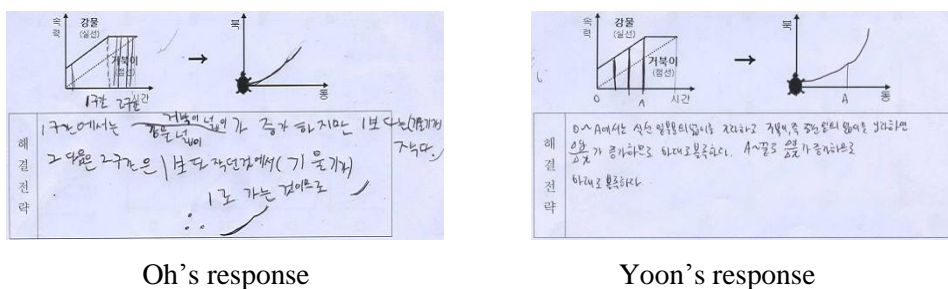 속력
강물
(실선)
거북이
(점선)
시간
1구간 2구간
→
북
동
해결전략
1구간에서는 거북이 넓이 / 강물 넓이 가 증가 하지만 1보다는 (기울기가) 작다.
그 다음은 2구간은 1보다 작던것에서 (기울기가)
1로 가는 것이므로
∴
Oh's response
속력
강물
(실선)
거북이
(점선)
0 A 시간
→
북
A
동
해결전략
0~A에서는 실선
Δy/Δx 가 증가하므로 아래로 볼록하다. A~끝도 Δy/Δx 가 증가하므로
아래로 볼록하다
Yoon's response